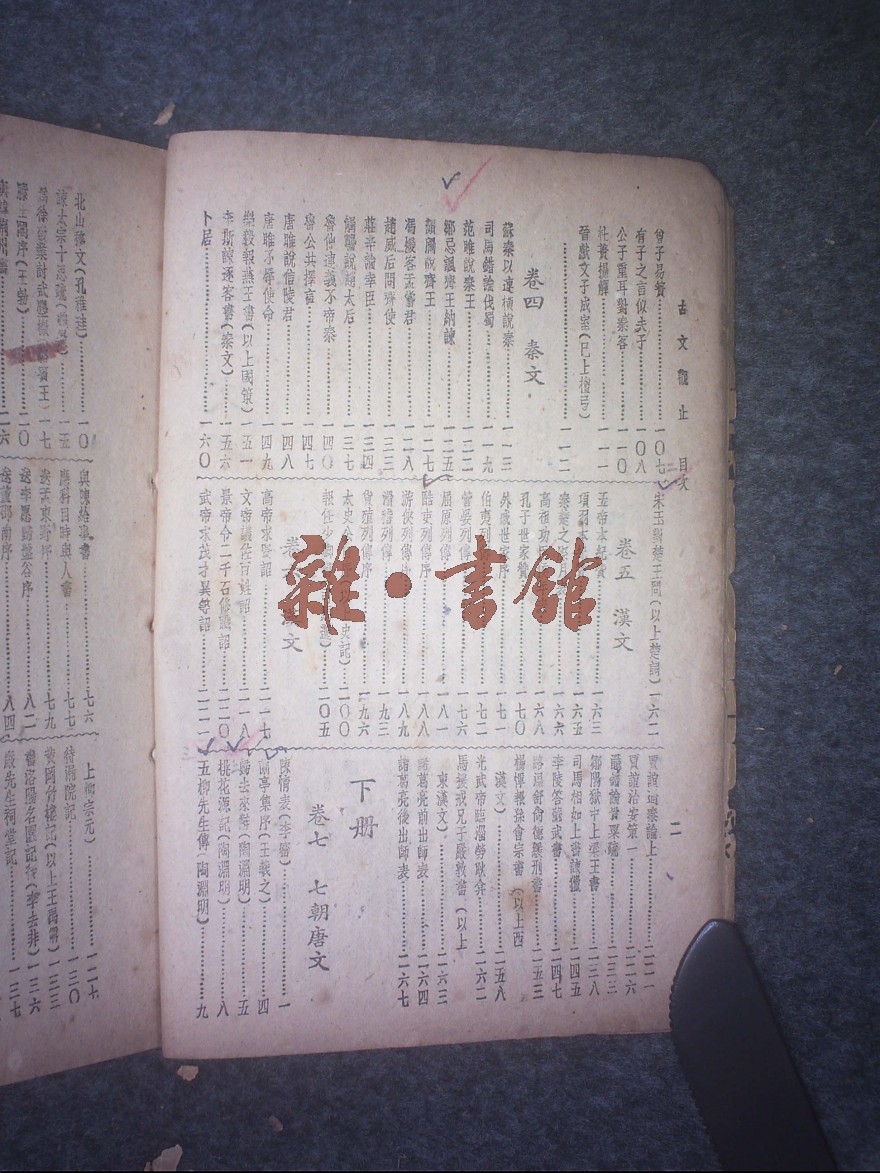 古文觀止 目次
二
曾子易簀………一〇七
有子之言似夫子………一〇八
公子重耳對秦客………一一〇
杜蕢揚觶………一一一
晉獻文子成室(已上檀弓)
………一一二
卷四 秦文
蘇秦以連橫說秦………一一三
司馬錯論伐蜀………一一九
范雎說秦王………一二二
鄒忌諷齊王納諫………一二五
顏斶說齊王………一二七
馮煖客孟嘗君………一二八
趙威后問齊使………一三三
莊辛論幸臣………一三四
觸讋說趙太后………一三七
魯仲連義不帝秦………一四〇
魯公共擇言………一四七
唐雎說信陵君………一四八
唐雎不辱使命………一四九
樂毅報燕王書(以上國策)一五一
李斯諫逐客書(秦文)………一五六
卜居………一六〇
宋玉對楚王問(以上楚詞)一六二
卷五 漢文
五帝本紀贊………一六三
項羽本………一六五
秦楚之際月………一六六
高祖功………一六八
孔子世家贊………一七〇
外戚世家序………一七一
伯夷列………一七二
管晏列傳………一七六
屈原列傳………一八一
酷吏列傳序………一八八
游俠列傳………一八九
滑稽列傳………一九三
貨殖列傳序………一九六
太史公………史記)二〇〇
報任少卿………二〇五
卷 漢文
高帝求賢詔………二一七
文帝議佐百姓詔………二一八
景帝令二千石修職詔………二二〇
武帝求茂才異等詔………二二一
賈誼過秦論上………二二一
賈誼治安策一………二二六
鼂錯論貴粟疏………二三三
鄒陽獄中上梁王書………二三八
司馬相如上書諫獵………二四五
李陵答蘇武書………二四七
路溫舒尚德緩刑書………二五三
楊惲報孫會宗書(以上西
漢文)………二五八
光武帝臨淄勞耿弇………二六二
馬援戒兄子嚴敦書(以上
東漢文)………二六三
諸葛亮前出師表………二六四
諸葛亮後出師表………二六七
下册
卷七 七朝唐文
陳情表(李密)………一
蘭亭集序(王羲之)………四
歸去來辭(陶淵明)………五
桃花源記(陶淵明)………八
五柳先生傳(陶淵明)………九
北山移文(孔稚珪)………一〇
諫太宗十思疏(魏徵)………一五
爲徐敬業討武曌檄(駱賓王)一七
滕王閣序(王勃)………二〇
與韓荊州書………二六
與陳給事書………七六
應科目時與人書………七七
送孟東野序………七九
送李愿歸盤谷序………八二
送董邵南序………八四
上柳宗元)………一二七
待漏院記………一三〇
黃岡竹樓記(以上王禹偁)一三三
書洛陽名園記後(李去非)一三六
嚴先生祠堂記………一三七
雜·書館